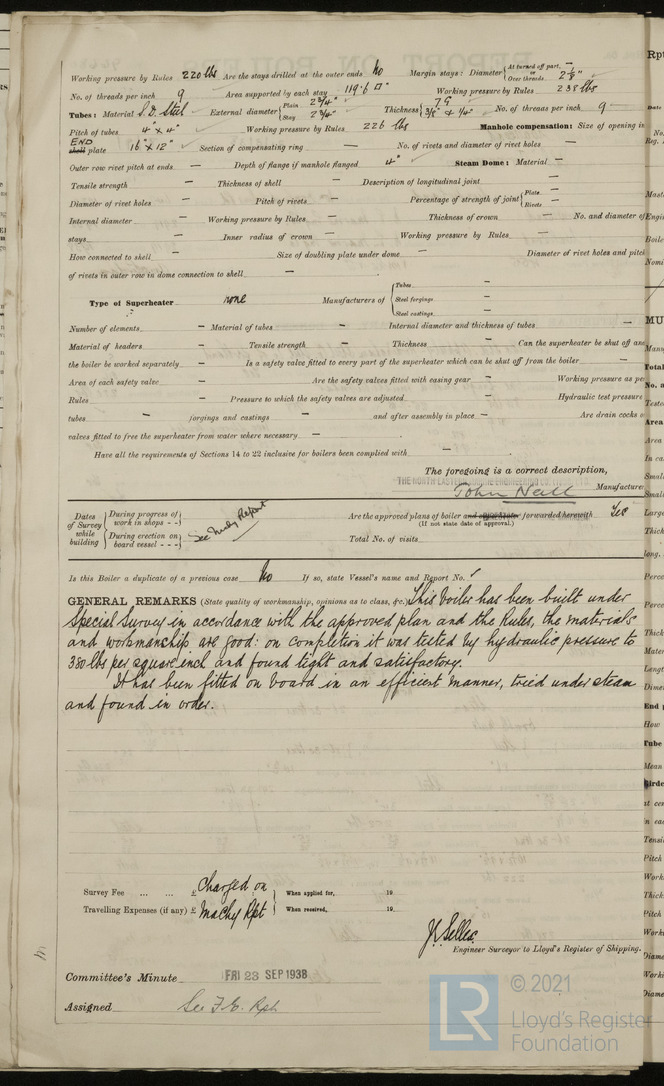 Working pressure by Rules 220 lbs Are the stays drilled at the outer ends No Margin stays: Diameter { At turned off part, — or Over threads 2 1/8" Rpt
No. of threads per inch 9 Area supported by each stay 119.6 □" Working pressure by Rules 238 lbs
Tubes: Material S.D. Steel External diameter { Plain 2 3/4" Stay 2 3/4" Thickness { 7G 3/8" & 1/4" No. of threads per inch 9 Date
Pitch of tubes 4" x 4" Working pressure by Rules 226 lbs Manhole compensation: Size of opening in No.
END shell plate 16" x 12" Section of compensating ring — No. of rivets and diameter of rivet holes — Reg.
Outer row rivet pitch at ends — Depth of flange if manhole flanged 4" Steam Dome: Material —
Tensile strength — Thickness of shell — Description of longitudinal joint —
Diameter of rivet holes — Pitch of rivets — Percentage of strength of joint { Plate — Rivets —
Internal diameter — Working pressure by Rules — Thickness of crown — No. and diameter of
stays — Inner radius of crown — Working pressure by Rules —
How connected to shell — Size of doubling plate under dome — Diameter of rivet holes and pitch
of rivets in outer row in dome connection to shell —
Type of Superheater none Manufacturers of { Tubes — Steel forgings — Steel castings —
Number of elements — Material of tubes — Internal diameter and thickness of tubes —
Material of headers — Tensile strength — Thickness — Can the superheater be shut off and
the boiler be worked separately — Is a safety valve fitted to every part of the superheater which can be shut off from the boiler —
Area of each safety valve — Are the safety valves fitted with easing gear — Working pressure as per
Rules — Pressure to which the safety valves are adjusted — Hydraulic test pressure
tubes — forgings and castings — and after assembly in place — Are drain cocks or
valves fitted to free the superheater from water where necessary —
Have all the requirements of Sections 14 to 22 inclusive for boilers been complied with —
The foregoing is a correct description,
THE NORTH EASTERN MARINE ENGINEERING CO.
John Neill Manufacturer
Dates of Survey while building { During progress of work in shops - - } { During erection on board vessel - - - } See Mchy Report
Are the approved plans of boiler and superheater forwarded herewith Yes
(If not state date of approval.)
Total No. of visits
Is this Boiler a duplicate of a previous case No If so, state Vessel's name and Report No.
GENERAL REMARKS (State quality of workmanship, opinions as to class, &c.) This boiler has been built under
Special Survey in accordance with the approved plan and the Rules, the materials
and workmanship are good: on completion it was tested by hydraulic pressure to
380 lbs per square inch and found tight and satisfactory.
It has been fitted on board in an efficient manner, tried under steam
and found in order.
Survey Fee ... ... £ Charged on When applied for, 19
Travelling Expenses (if any) £ Machy Rpt When received, 19
Engineer Surveyor to Lloyd's Register of Shipping.
Committee's Minute FRI 23 SEP 1938
Assigned See F.E. Rpt
LR © 2021
Lloyd's Register
Foundation